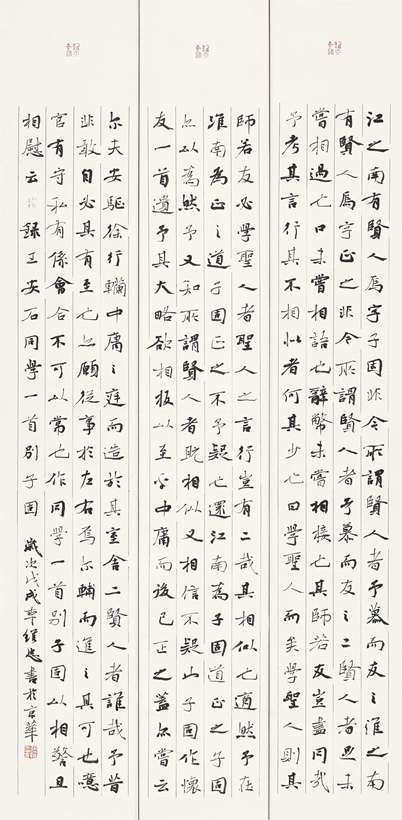 江之南有賢人焉字子固非今所謂賢人者予慕而友之淮之南
有賢人焉字正之非今所謂賢人者予慕而友之二賢人者足未
嘗相過也口未嘗相語也辭幣未嘗相接也其師若友豈盡同哉
予考其言行其不相似者何其少也曰學聖人而矣學聖人則其
師若友必學聖人者聖人之言行豈有二哉其相似也適然予在
淮南為正之道子固正之不予疑也還江南為子固道正之子固
亦以為然予又知所謂賢人者既相似又相信不疑也子固作懷
友一首遺予其大略欲相扳以至乎中庸而後已正之蓋亦嘗云
尔夫安驅徐行轥中庸之庭而造於其室舍二賢人者誰哉予昔
非敢自必其有至也亦願從事於左右焉尔輔而進之其可也噫
官有守私有係會合不可以常也作同學一首別子固以相警且
相慰云 錄王安石同學一首別子固 歲次戊戌年 書於京華